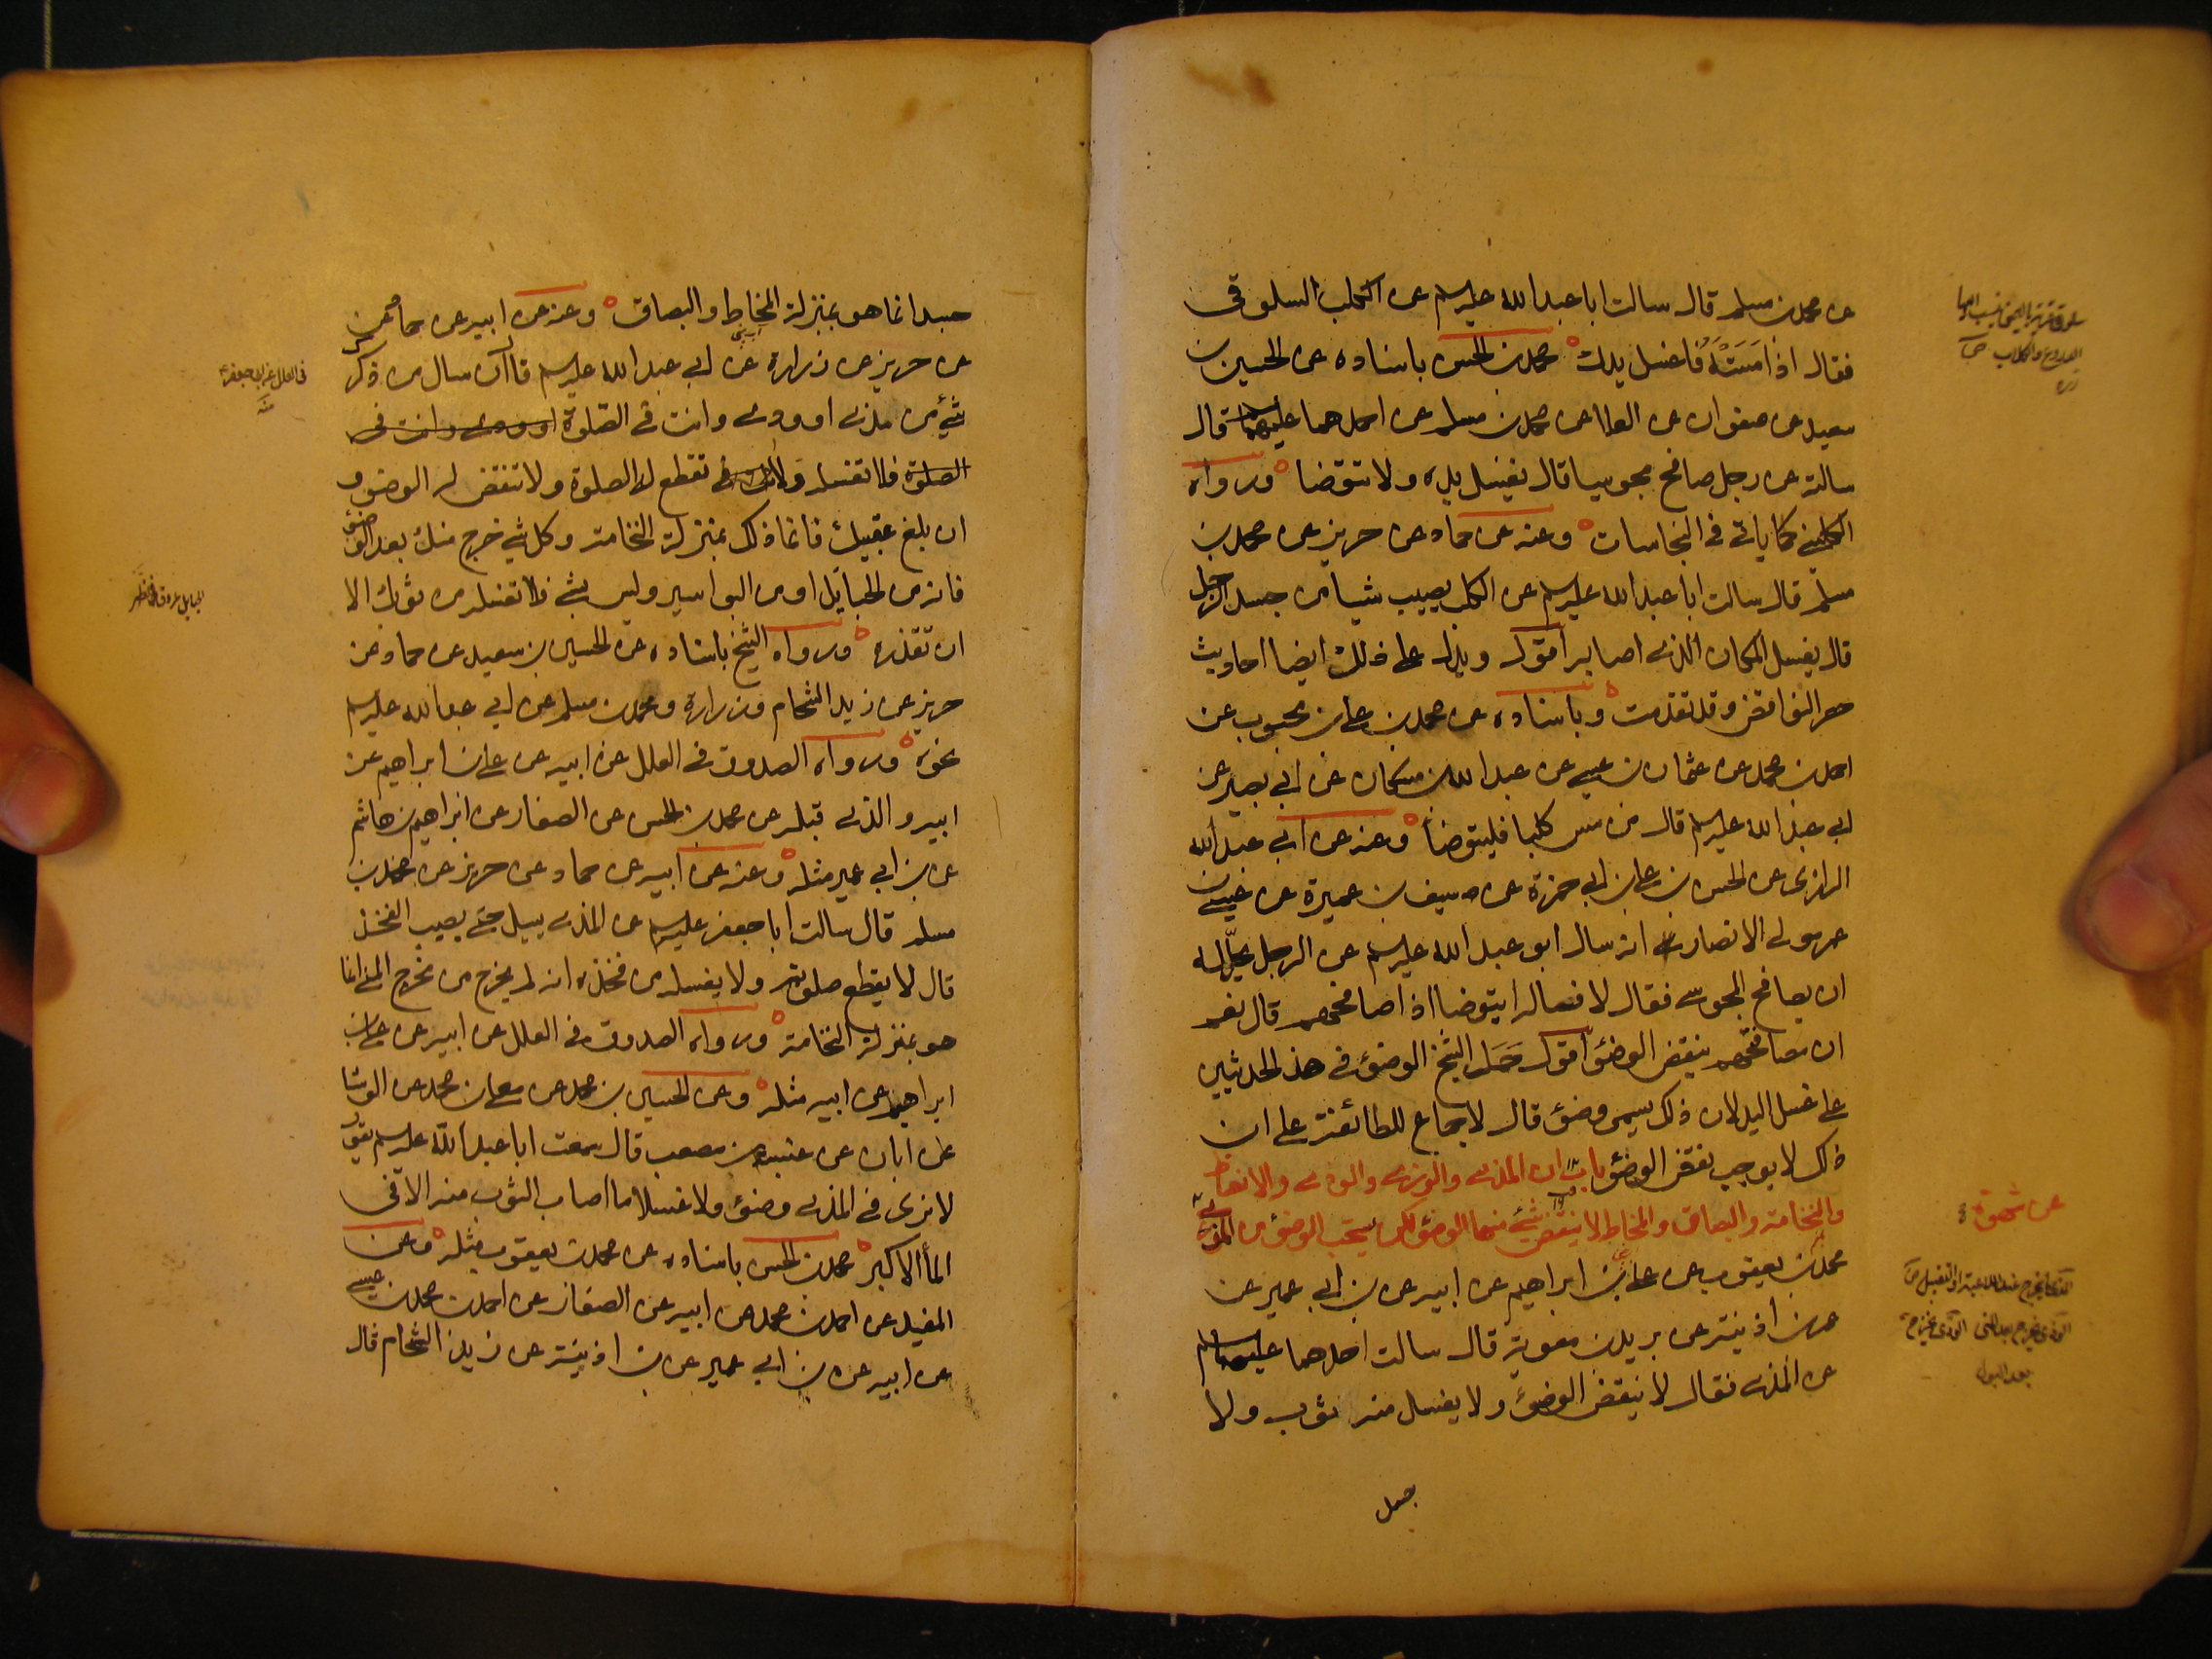 عن محمد بن مسلم قال سالت ابا عبد الله عليه السلم عن الكلب السلوقى
فقال اذا مسسته فاغسل يدك محمد بن الحسن باسناده عن الحسين بن
سعيد عن صفوان عن العلا عن محمد بن مسلم عن احدهما عليهما السلم قال
سالته عن رجل صافح مجوسيا قال يغسل يده ولا يتوضا ورواه
الكلينى كما ياتى فى النجاسات وعنه عن حماد عن حريز عن محمد بن
مسلم قال سالت ابا عبد الله عليه السلم عن الكلب يصيب شيا من جسد الرجل
قال يغسل المكان الذى اصابه اقول ويدل على ذلك ايضا احاديث
حصر النواقض وقد تقدمت وباسناده عن محمد بن على بن محبوب عن
احمد بن محمد عن عثمان بن عيسى عن عبد الله بن مسكان عن ابى بصير عن
ابى عبد الله عليه السلم قال من مس كلبا فليتوضا وعنه عن ابى عبد الله
الرازى عن الحسن بن على بن ابى حمزة عن سيف بن عميرة عن عيسى بن
عمر مولى الانصار انه سال ابو عبد الله عليه السلم عن الرجل يحل له
ان يصافح المجوسى فقال لا فساله ايتوضا اذا صافحهم قال نعم
ان مصافحتهم ينقض الوضوء اقول حمل الشيخ الوضوء فى هذ الحديثين
على غسل اليد لان ذلك يسمى وضوء قال لاجماع الطائفة على ان
ذلك لا يوجب نقض الوضوء باب ان المذى والوذى والودى والانعاظ
والنخامة والبصاق والمخاط لا ينقض شىء منها الوضوء لكن يستحب الوضوء من المذى
عن شهوة
محمد بن يعقوب عن على بن ابراهيم عن ابيه عن بن ابى عمير عن
عمر بن اذينة عن بريد بن معوية قال سالت احدهما عليهما السلم
عن المذى فقال لا ينقض الوضوء ولا يغسل منه ثوب ولا
جسد
جسد انما هو بمنزلة المخاط والبصاق وعنه عن ابيه عن حماد
عن حريز عن زرارة عن ابى عبد الله عليه السلم قال ان سال من ذكرك
شىء من مذى او ودى وانت فى الصلوة او ودى وانت فى
الصلوة فلا تغسله ولا تقطع له الصلوة ولا تنقض له الوضوء و
ان بلغ عقبيك فانما ذلك بمنزلة النخامة وكل شىء خرج منك بعد الوضوء
فانه من الحبايل او من البواسير وليس بشىء فلا تغسله من ثوبك الا
ان تقذره ورواه الشيخ باسناده عن الحسين بن سعيد عن حماد عن
حريز عن زيد الشحام وزرارة ومحمد بن مسلم عن ابى عبد الله عليه السلم
نحوه ورواه الصدوق فى العلل عن ابيه عن على بن ابراهيم عن
ابيه والذى قبله عن محمد بن الحسن عن الصفار عن ابراهيم بن هاشم
عن بن ابى عمير مثله وعنه عن ابيه عن حماد عن حريز عن محمد بن
مسلم قال سالت ابا جعفر عليه السلم عن المذى يسيل حتى يصيب الفخذ
قال لا يقطع صلوته ولا يغسله من فخذه انه لم يخرج من مخرج المنى انما
هو بمنزلة النخامة ورواه الصدوق فى العلل عن ابيه عن على بن
ابراهيم عن ابيه مثله وعن الحسين بن محمد عن معلى بن محمد عن الوشا
عن ابان عن عنبسة بن مصعب قال سمعت ابا عبد الله عليه السلم يقول
لا نرى فى المذى وضوء ولا غسلا ما اصاب الثوب منه الا فى
الماء الاكبر محمد بن الحسن باسناده عن محمد بن يعقوب مثله وعن
المفيد عن احمد بن محمد عن ابيه عن الصفار عن احمد بن محمد بن عيسى
عن ابيه عن بن ابى عمير عن بن اذينة عن زيد الشحام قال
فى العلل عن ابى جعفر